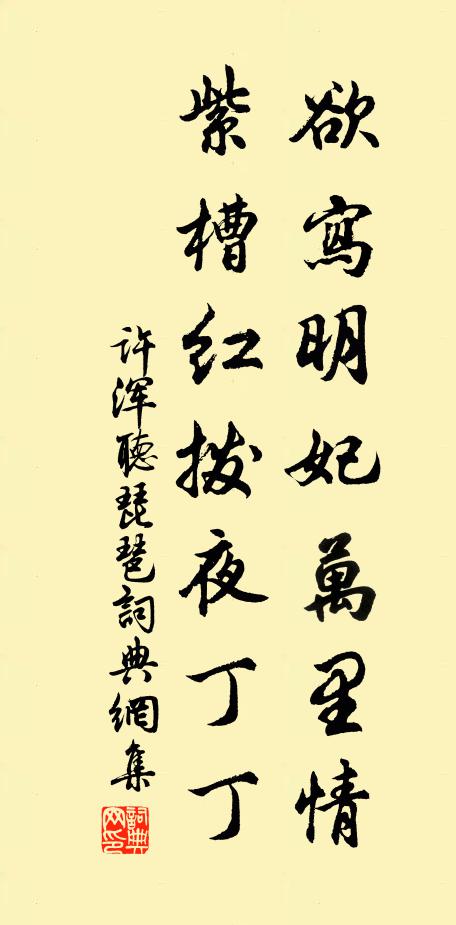 欲寫明妃萬里情
紫槽紅撥夜丁丁
许渾聽琵琶詞典網集
詞典網印